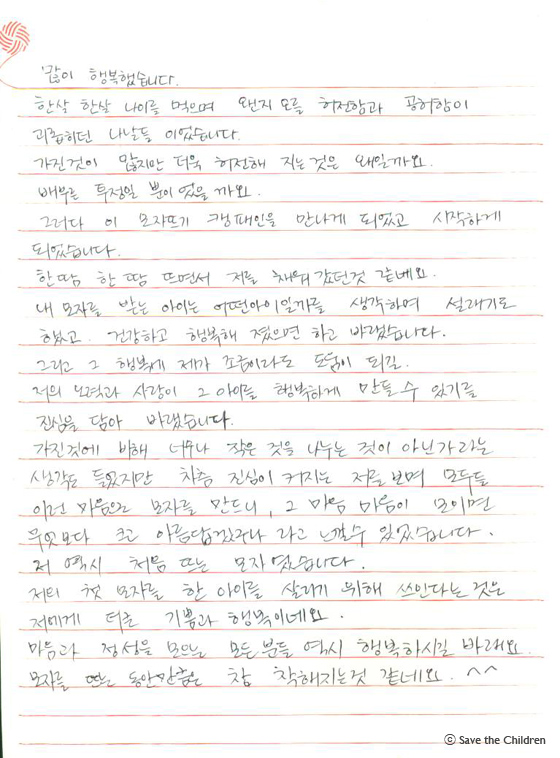 많이 행복했습니다.
한살 한살 나이를 먹으며 왠지 모를 허전함과 공허함이
괴롭히던 나날들 이었습니다.
가진것이 많지만 더욱 허전해 지는것은 왜일까요.
배부른 투정일 뿐이었을까요.
그러다 이 모자뜨기 캠패인을 만나게 되었고 시작하게
되었습니다.
한땀 한땀 뜨면서 저를 채워갔던것 같네요.
내 모자를 받는 아이는 어떤아이일까를 생각하며 설래기도
하였고. 건강하고 행복해 졌으면 하고 바랬습니다.
그리고 그 행복에 제가 조금이라도 도움이 되길.
저의 노력과 사랑이 그 아이를 행복하게 만들 수 있기를
진심을 담아 바랬습니다.
가진것에 비해 너무나 작은 것을 나누는 것이 아닌가라는
생각도 들었지만 차츰 진심이 커지는 저를 보며 모두들
이런 마음으로 모자를 만드니, 그 마음 마음이 모이면
무엇보다 크고 아름답겠구나 라고 느낄수 있었습니다.
저 역시 처음 뜨는 모자 였습니다.
저의 첫 모자를 한 아이를 살리기 위해 쓰인다는 것은
저에게 더 큰 기쁨과 행복이네요.
마음과 정성을 모으는 모든 분들 역시 행복하시길 바래요.
모자를 뜨는 동안만큼은 참 착해지는것 같네요. ^^
ⓒ Save the Children